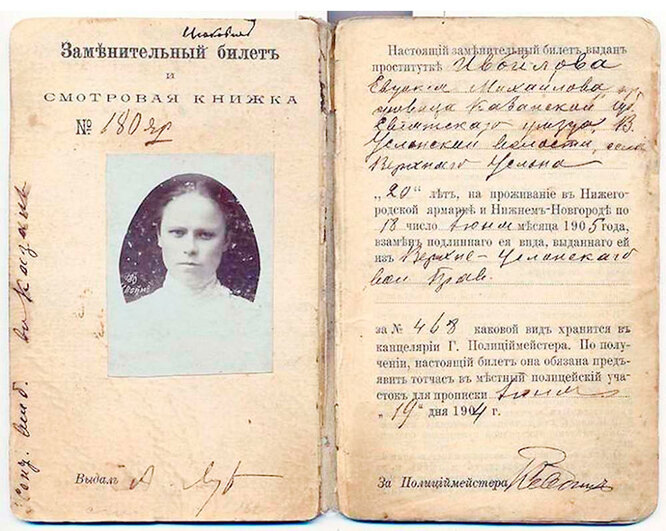 Замѣнительный билетъ
и
СМОТРОВАЯ КНИЖКА
№ 180 яр
Выдалъ
въ Казань
Настоящій замѣнительный билетъ выданъ
проституткѣ
Михайлова
Казанской
уѣзда, В.
Услонской волости, села
Верхняго Услона
„20" лѣтъ, на проживаніе въ Нижего-
родской ярмаркѣ и Нижнемъ-Новгородѣ по
18 число Іюня мѣсяца 1905 года,
взамѣнъ подлиннаго ея вида, выданнаго ей
изъ Верхне-Услонскаго
вол Прав.
за № 468 каковой видъ хранится въ
канцеляріи Г. Полиціймейстера. По полу-
ченіи, настоящій билетъ она обязана предъ-
явить тотчасъ въ мѣстный полицейскій уча-
стокъ для прописки Іюня
„19" дня 1904 г.
За Полиціймейстера